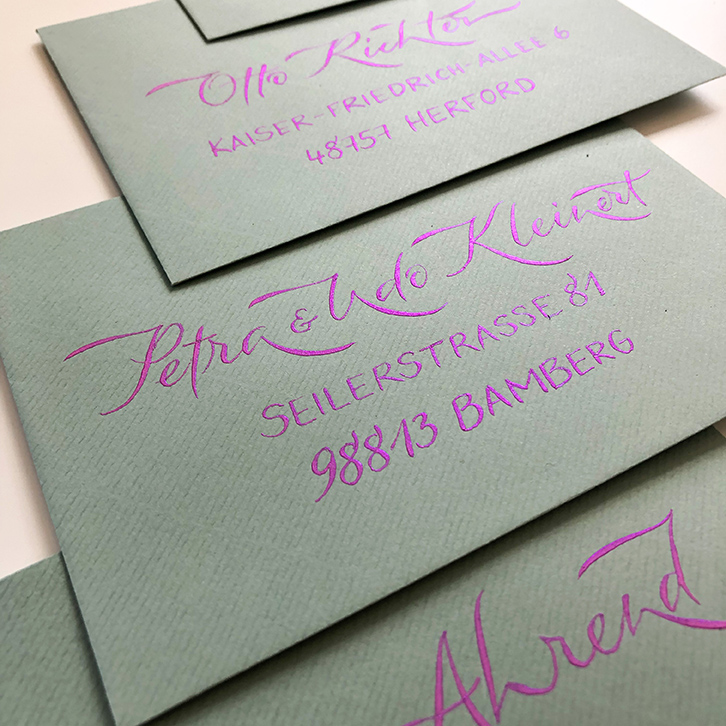 Otto Richter
KAISER-FRIEDRICH-ALLEE 6
48757 HERFORD
Petra & Udo Kleinert
SEILERSTRASSE 81
98813 BAMBERG
Ahrend